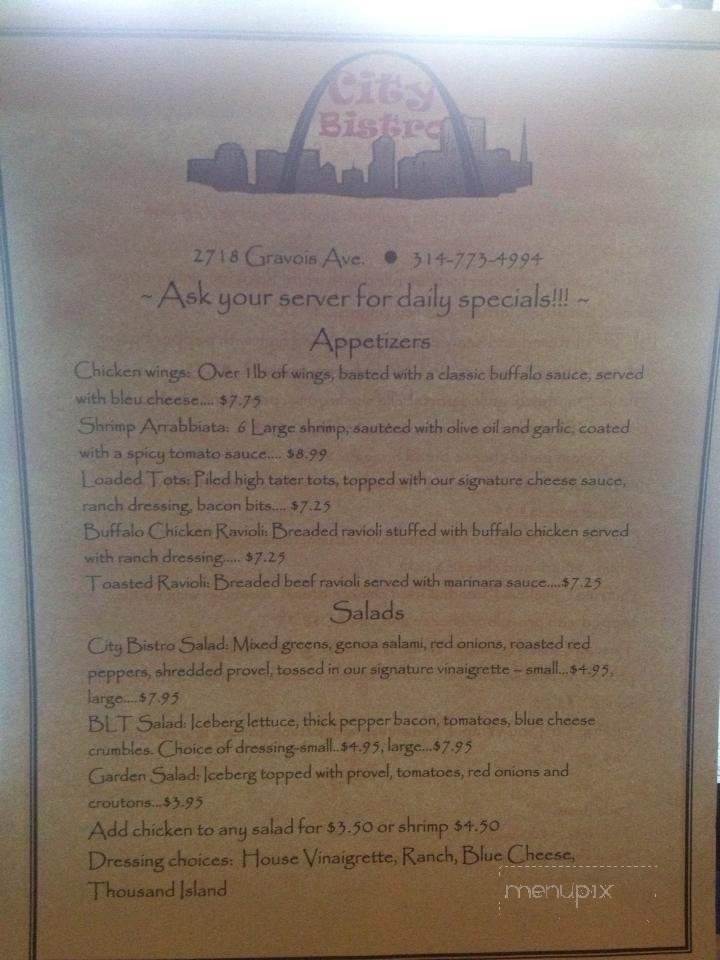 City
Bistro
2718 Gravois Ave. ● 314-773-4994
~ Ask your server for daily specials!!! ~
Appetizers
Chicken wings: Over 1lb of wings, basted with a classic buffalo sauce, served
with bleu cheese.... $7.75
Shrimp Arrabbiata: 6 Large shrimp, sautéed with olive oil and garlic, coated
with a spicy tomato sauce.... $8.99
Loaded Tots: Piled high tater tots, topped with our signature cheese sauce,
ranch dressing, bacon bits.... $7.25
Buffalo Chicken Ravioli: Breaded ravioli stuffed with buffalo chicken served
with ranch dressing..... $7.25
Toasted Ravioli: Breaded beef ravioli served with marinara sauce....$7.25
Salads
City Bistro Salad: Mixed greens, genoa salami, red onions, roasted red
peppers, shredded provel, tossed in our signature vinaigrette – small...$4.95,
large....$7.95
BLT Salad: Iceberg lettuce, thick pepper bacon, tomatoes, blue cheese
crumbles. Choice of dressing-small..$4.95, large...$7.95
Garden Salad: Iceberg topped with provel, tomatoes, red onions and
croutons...$3.95
Add chicken to any salad for $3.50 or shrimp $4.50
Dressing choices: House Vinaigrette, Ranch, Blue Cheese,
Thousand Island
menupix